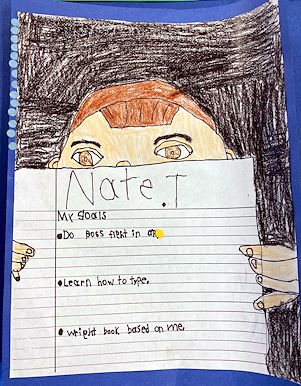 Nate.T
My goals
•Do Boss fight in
•Learn how to type.
• weight book based on me.